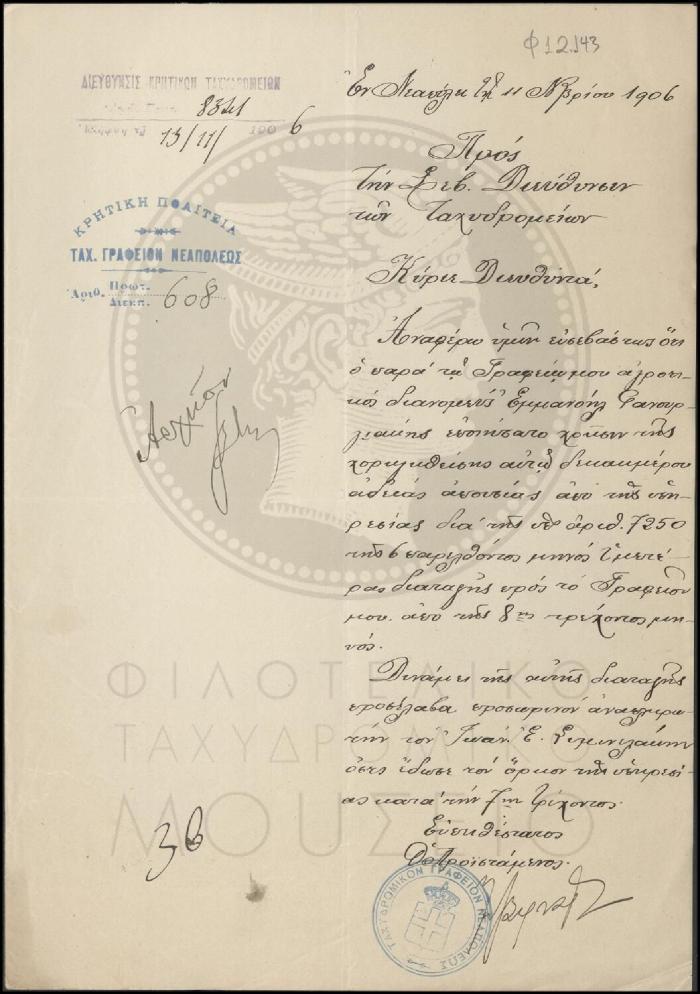 Φ12.143
ΔΙΕΥΘΥΝΣΙΣ ΚΡΗΤΙΚΩΝ ΤΑΧΥΔΡΟΜΕΙΩΝ
13/11/ 190 6
ΚΡΗΤΙΚΗ ΠΟΛΙΤΕΙΑ
ΤΑΧ. ΓΡΑΦΕΙΟΝ ΝΕΑΠΟΛΕΩΣ
Ἀριθ. Πρωτ. Διεκπ. 608
Ἐν Νεαπόλει τῇ 11 Νβρίου 1906
Πρὸς
τὴν Σεβ. Διεύθυνσιν
τῶν Ταχυδρομείων
Κύριε Διευθυντά,
Ἀναφέρω ὑμῖν εὐσεβάστως ὅτι
ὁ παρὰ τῷ Γραφείῳ μου ἀγροτι-
κὸς διανομεὺς Ἐμμανουὴλ Φανουρ-
γιάκης ἐποιήσατο χρῆσιν τῆς
χορηγηθείσης αὐτῷ δεκαημέρου
ἀδείας ἀπουσίας ἀπὸ τῆς ὑπη-
ρεσίας διὰ τῆς ὑπ' ἀριθ. 7250
τῆς 6 παρελθόντος μηνὸς Ὑμετέ-
ρας διαταγῆς πρὸς τὸ Γραφεῖον
μου ἀπὸ τῆς 8ης τρέχοντος μη-
νός.
Δυνάμει τῆς αὐτῆς διαταγῆς
προσέλαβα προσωρινὸν ἀναπληρω-
τὴν τὸν Ἰωάν. Ε.
ὅστις ἔδωσε τὸν ὅρκον τῆς ὑπηρεσί-
ας κατὰ τὴν 7ην τρέχοντος.
Εὐπειθέστατος
Ὁ Προϊστάμενος
Ἀρχεῖον
36
ΤΑΧΥΔΡΟΜΙΚΟΝ ΓΡΑΦΕΙΟΝ ΝΕΑΠΟΛΕΩΣ
ΦΙΛΟΤΕΛΙΚΟ
ΤΑΧΥΔΡΟΜΙΚΟ
ΜΟΥΣΕΙΟ